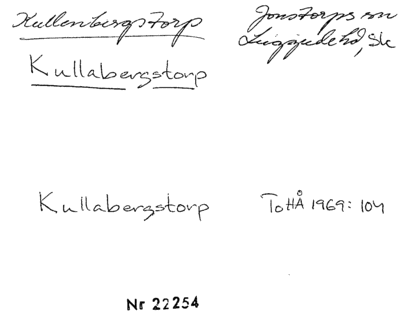 Kullenbergstorp
Jonstorps sn
Luggude hd, Sk
Kullabergstorp
Kullabergstorp
ToHÅ 1969: 104
Nr 22254